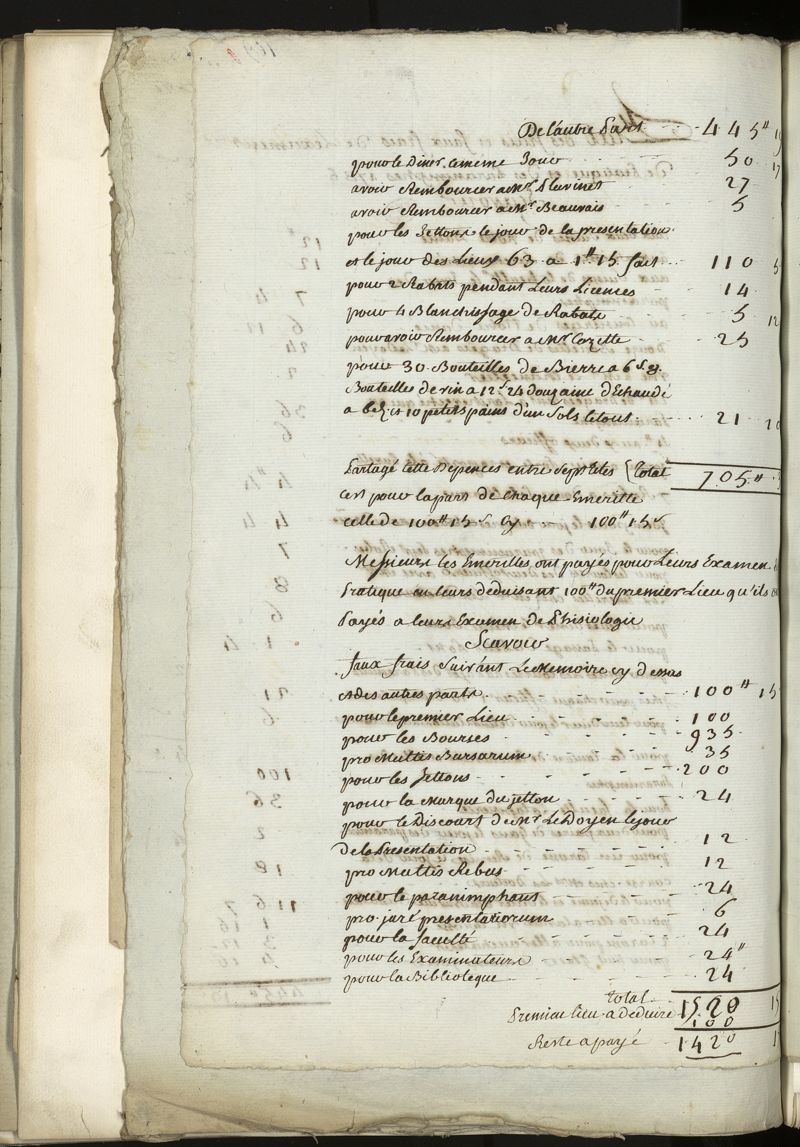 De l'autre Part 445" 19
pour le Diner le meme Jour 50 17
avoir Rembourcer a Mr. Pluvinet 27
avoir Rembourcer a Mr. Beauvais 5
pour les Jettons le jour de la presentation
et le jour des Lieux 63 a 1" 15 f fait 110 5
pour 2 Rabats pendant Leurs Licences 14
pour 4 Blanchissage de Rabats 5 12
pour avoir Rembourcer a Mr. Cozette 25
pour 30 Bouteilles de Bierre a 6 s. 8
Bouteilles de vin a 12 s 24 douzaine d'Echaudé
a 6 s et 10 petits pains d'un Sols le tout 21
Partagé cette Depences entre Sept têtes { total 705"
cest pour la part de Chaque Emeritte
celle de 100" 15 s Cy 100" 15 s
Messieurs les Emerittes ont payés pour Leurs Examen
Pratique en leurs deduisant 100" du premier Lieu qu'ils
Payés a leurs Examen de Phisiologie
Scavoir
faux frais Suivant Le Memoire cy dessus
et des autres parts 100" 15
pour le premier Lieu 100
pour les Bourses 935
pro Multis Bursarum 35
pour les Jettons 200
pour la Marque du jetton 24
pour le Discourt de Mr. Le Doyen le jour
de la Presentation 12
pro Multis Rebus 12
pour le paranimphaus 24
pro jure presentatiorum 6
pour la faculté 24
pour les Examinateurs 24"
pour la Biblioteque 24
total 1520 15
Premier lieu a deduire 100
Reste a payé 1420